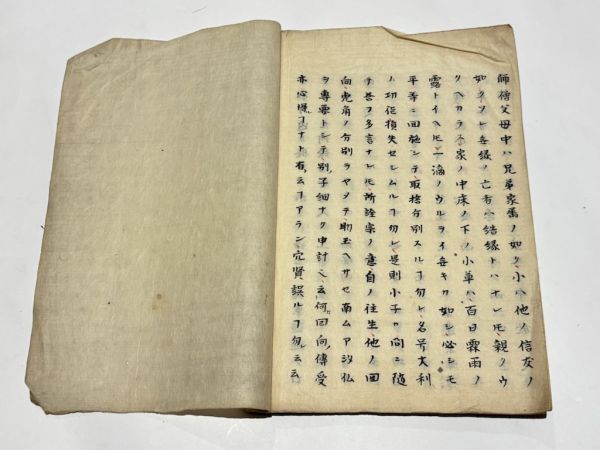 師僧父母中ハ兄弟家属ノ如ク小ハ他ノ信友ノ
如クソレ無縁ノ亡者ハ結縁トハナレ𪜈親クウ
クヘカラス家ノ中床ノ下ノ小草ハ百日霖雨ノ
露トイヘ𪜈一滴ノウルヲイ無キカ如シ必シモ
平等ニ回施シテ取捨分別スルヿ勿レ名号大利
ノ功徳損失セシムルヿ勿レ是則小子カ問ニ随
テ甚ヲ多言ナレ𪜈所詮宗ノ意自ノ往生他ノ回
向虎角ノ分別ヲヤメテ助玉ヘサセ南ムア弥仏
ヲ専要トシテ別ノ子細ナク申計ニ云何回向傳受
亦心ナト有云ヿアラン穴賢誤ルヿ勿云云